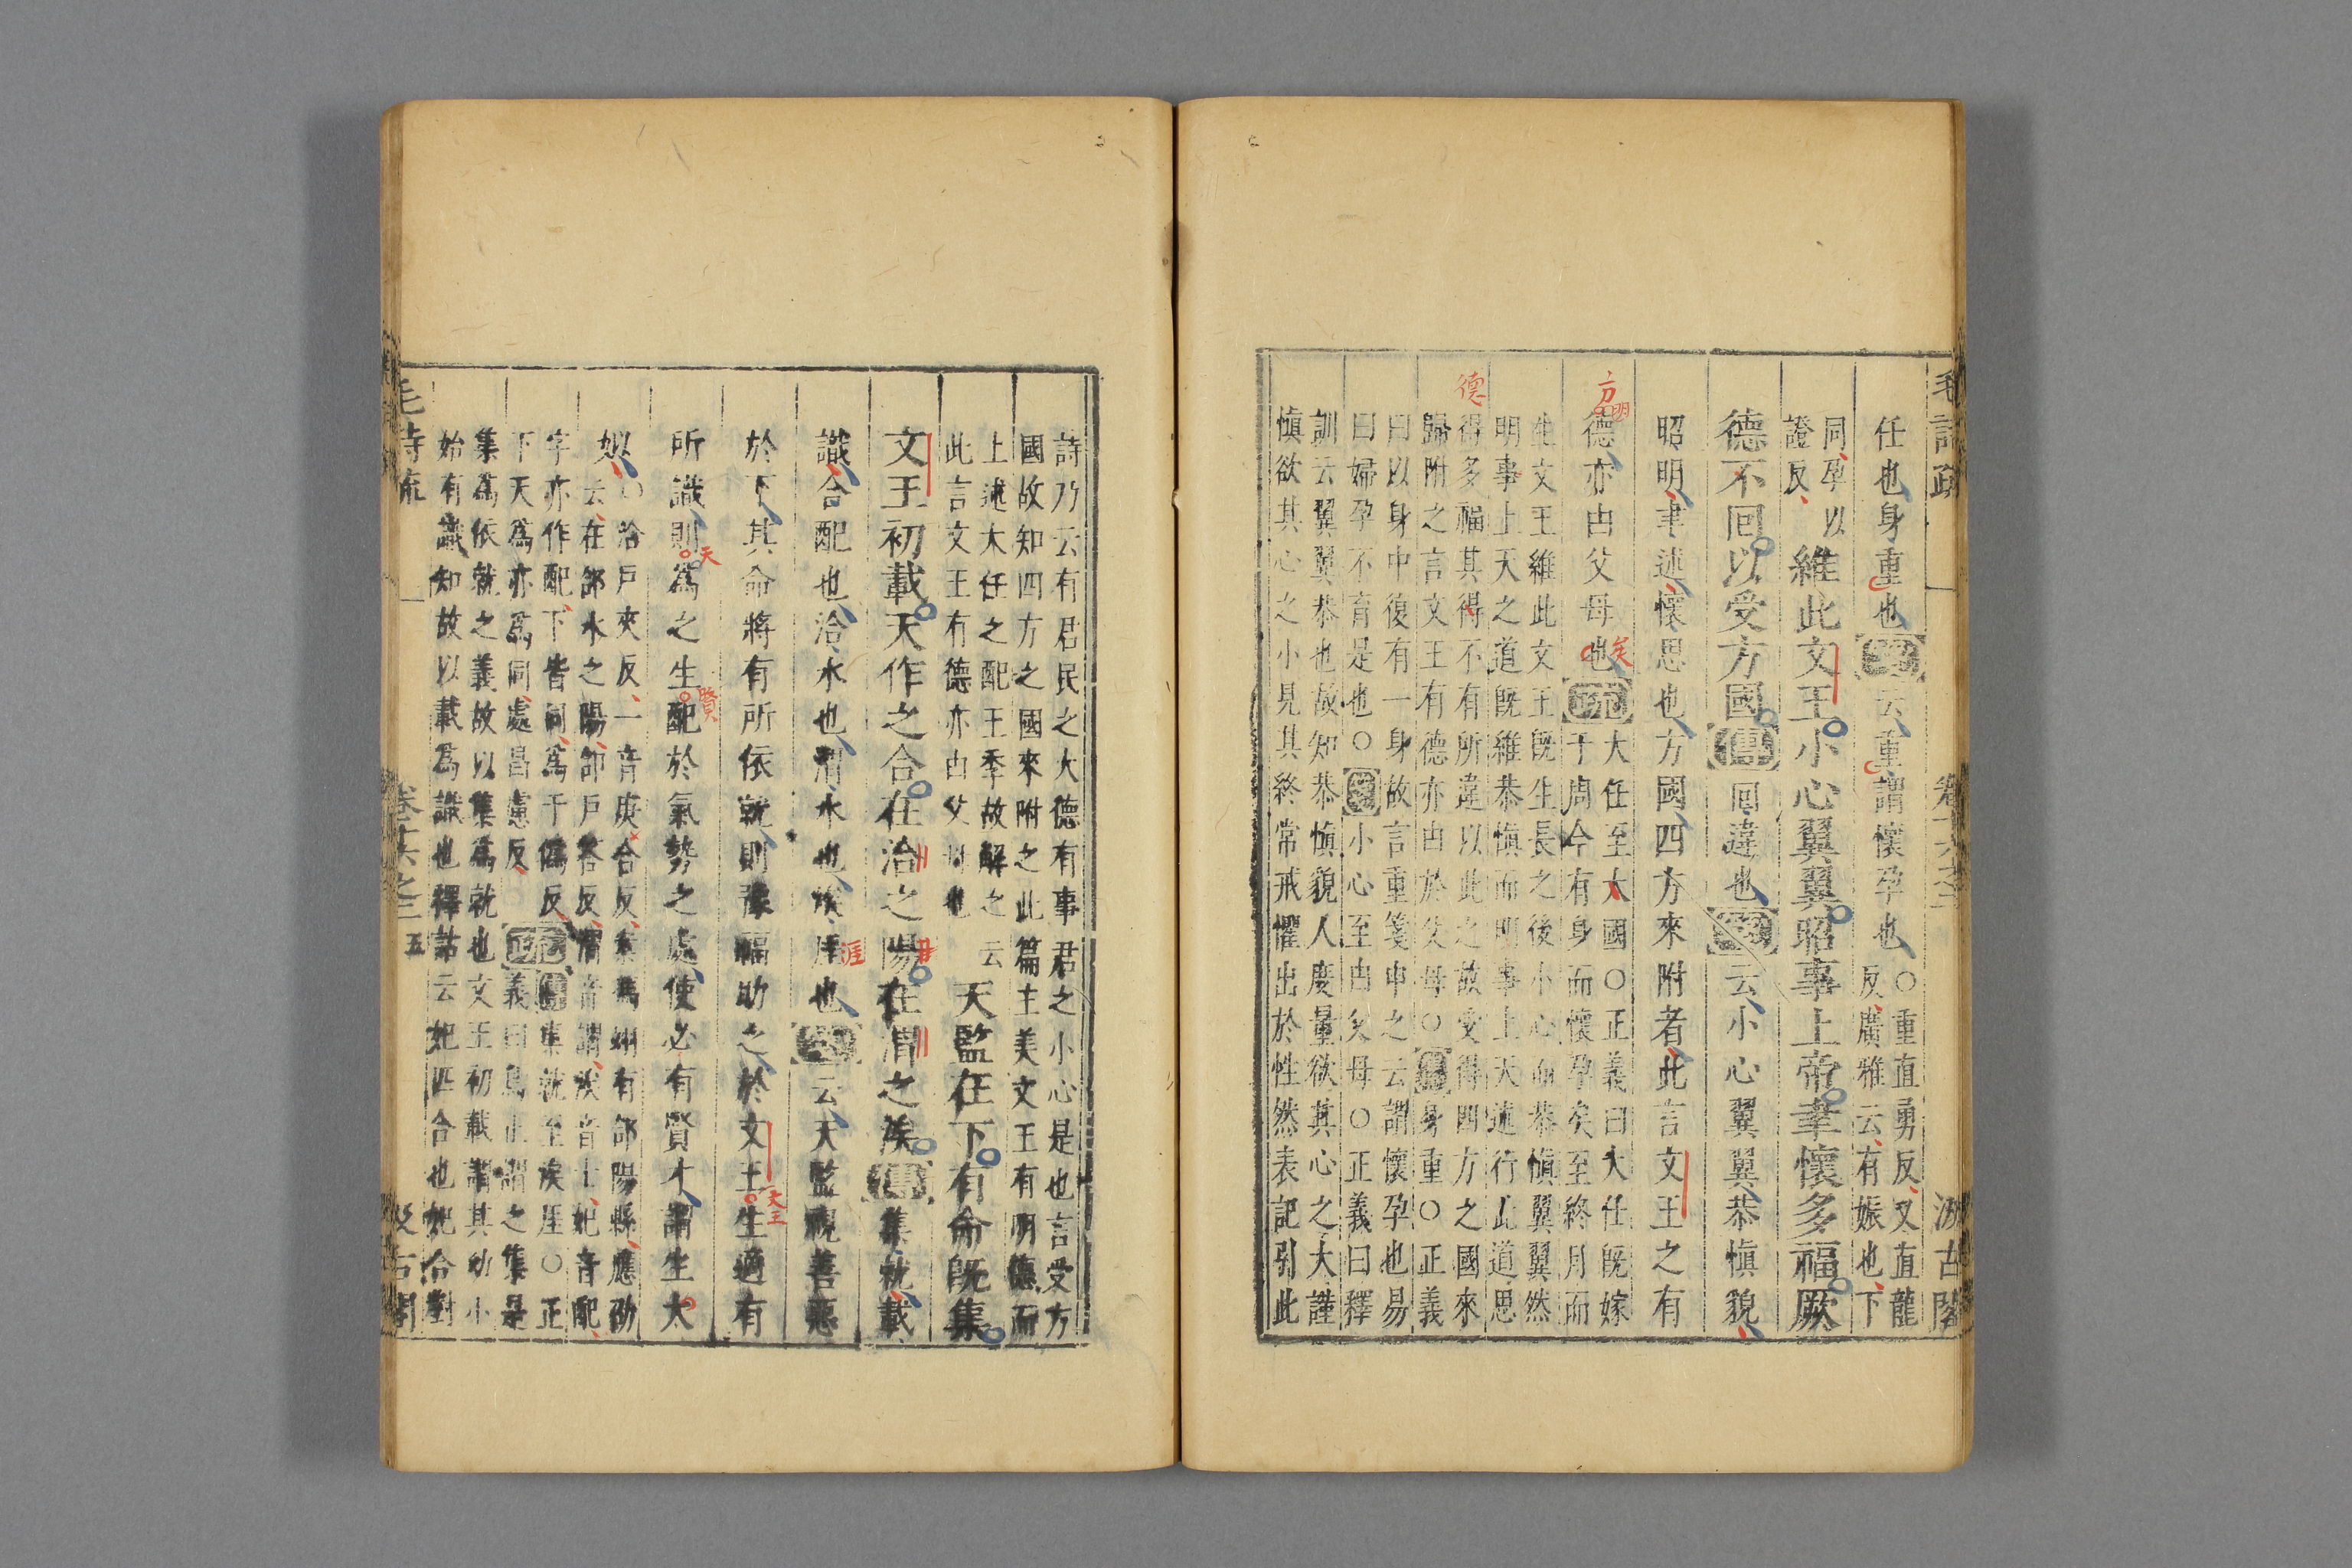 毛詩疏 卷十六之二 汲古閣
任也身重也箋云重謂懷孕也○重直勇反又直龍
反廣雅云有娠也下
同孕以
證反
維此文王小心翼翼昭事上帝聿懷多福厥
德不回以受方國傳回違也箋云小心翼翼恭慎貌
昭明聿述懷思也方國四方來附者此言文王之有
方明
德亦由父母也矣疏大任至大國○正義曰大任既嫁
于周今有身而懷孕矣至終月而
生文王維此文王既生長之後小心而恭慎翼翼然
明事上天之道既維恭慎而明事上天述行此道思
德
得多福其得不有所違以此之故受得四方之國來
歸附之言文王有德亦由於父母○傳身重○正義
曰以身中復有一身故言重箋申之云謂懷孕也易
曰婦孕不育是也○箋小心至由父母○正義曰釋
訓云翼翼恭也故知恭慎貌人度量欲其心之大謹
慎欲其心之小見其終常戒懼出於性然表記引此
詩乃云有君民之大德有事君之小心是也言受方
國故知四方之國來附之此篇主美文王有明德而
上述大任之配王季故解之云
此言文王有德亦由父母也
天監在下有命既集
文王初載天作之合在洽之陽在渭之涘傳集就載
識合配也洽水也渭水也涘厓也涯箋云天監視善惡
於下其命將有所依就則豫福助之於文王天王生適有
所識則天爲之生賢配於氣勢之處使必有賢才謂生大
姒○洽戶夾反一音庚合反案馮翊有郃陽縣應劭
云在郃水之陽郃戶荅反渭音謂涘音士妃音配
字亦作配下皆同爲于僞反
下天爲亦爲同處昌慮反
疏傳集就至涘厓○正
義曰鳥止謂之集是
集爲依就之義故以集爲就也文王初載謂其幼小
始有識知故以載爲識也釋詁云妃匹合也妃合對
毛詩疏 卷十六之二 五 汲古閣